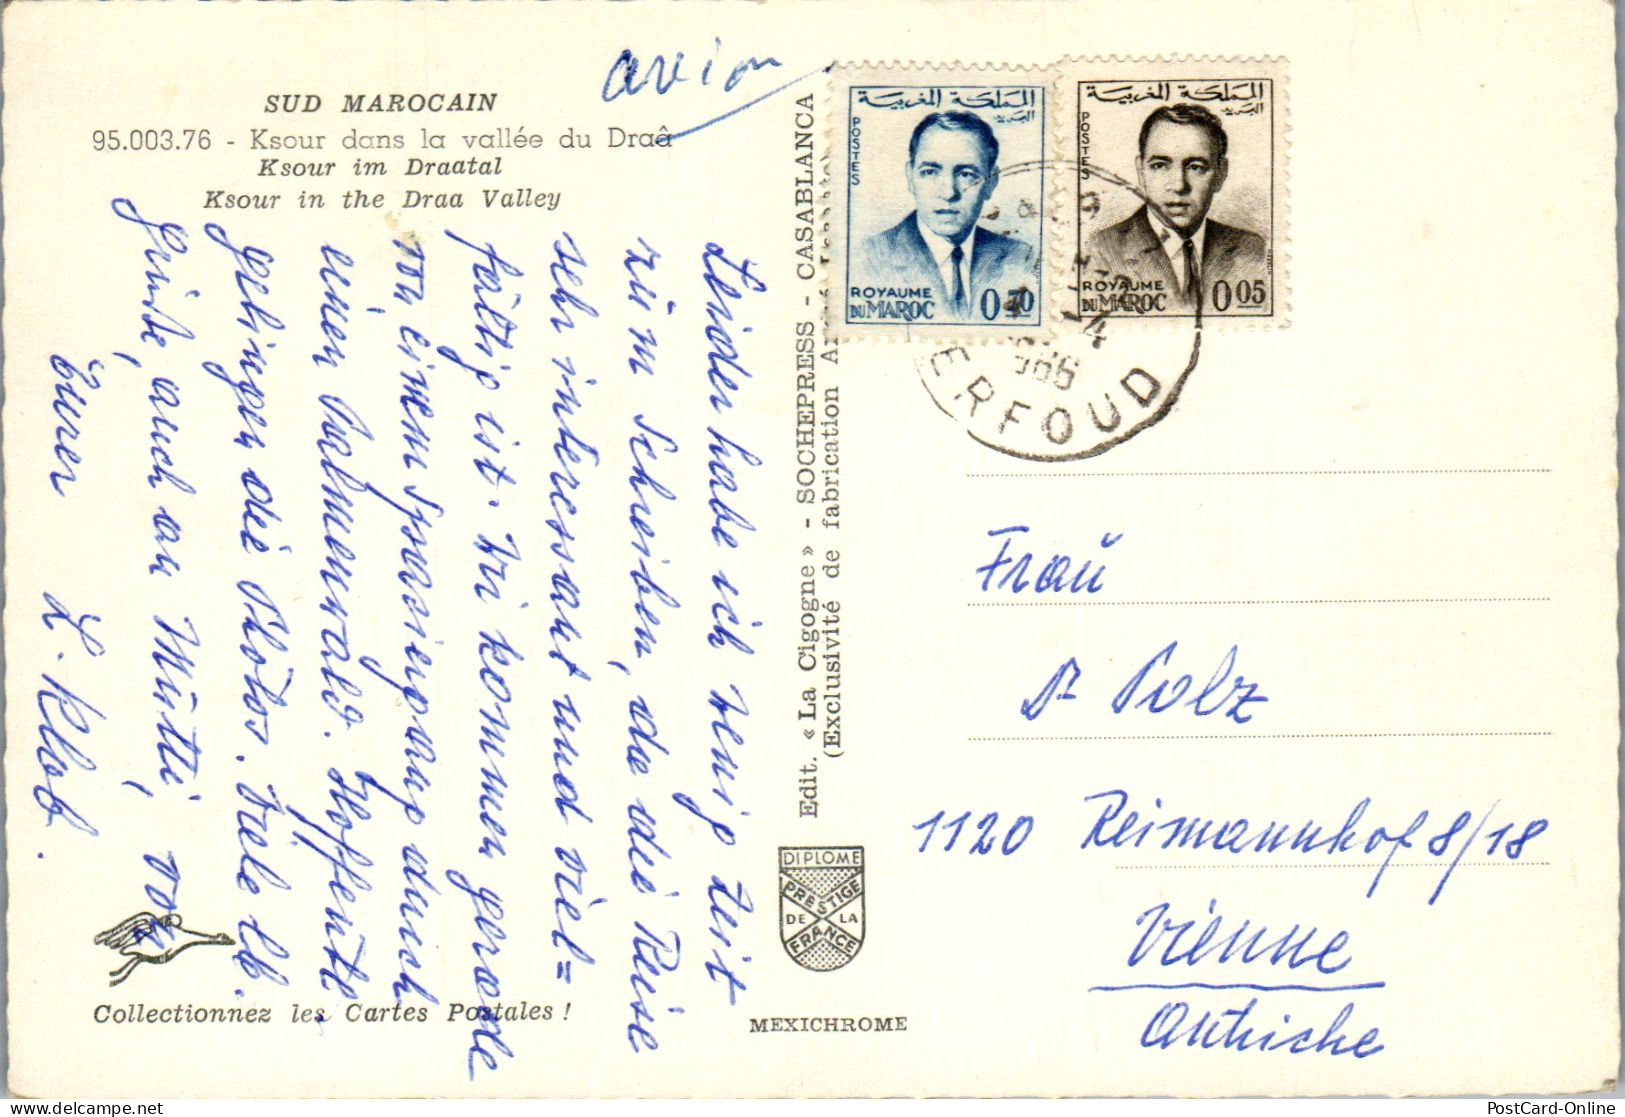 avion
SUD MAROCAIN
95.003.76 - Ksour dans la vallée du Draâ
Ksour im Draatal
Ksour in the Draa Valley
Leider habe ich wenig Zeit
zum Schreiben, da die Reise
sehr interessant und viel=
fältig ist. Wir kommen gerade
von einem Spaziergang durch
einen Palmenwald. Hoffentl.
gelingen die Photos. Viele lb.
Grüße, auch an Mutti, von
Eurer L. Klob.
Collectionnez les Cartes Postales !
Edit. « La Cigogne » - SOCHEPRESS - CASABLANCA
(Exclusivité de fabrication
DIPLOME
PRESTIGE
DE LA
FRANCE
MEXICHROME
المملكة المغربية
البريد
POSTES
ROYAUME
DU MAROC 0.70
المملكة المغربية
البريد
POSTES
ROYAUME
DU MAROC 0.05
ERFOUD
Frau
Dr Polz
1120 Reimannhof 8/18
Vienne
Autriche
PostCard-Online
delcampe.net